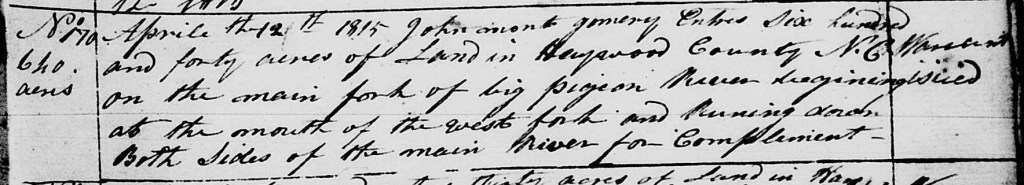 No 170 Aprile th 12th 1815 John mont gomery Entres Six hundred
640. and forty acres of Land in Haywood County N.C. Warrant
acris on the main fork of big pigeon River begining issied
at the mouth of the west fork and Runing down
Both Sides of the main River for Complement
thirty acres of Land in